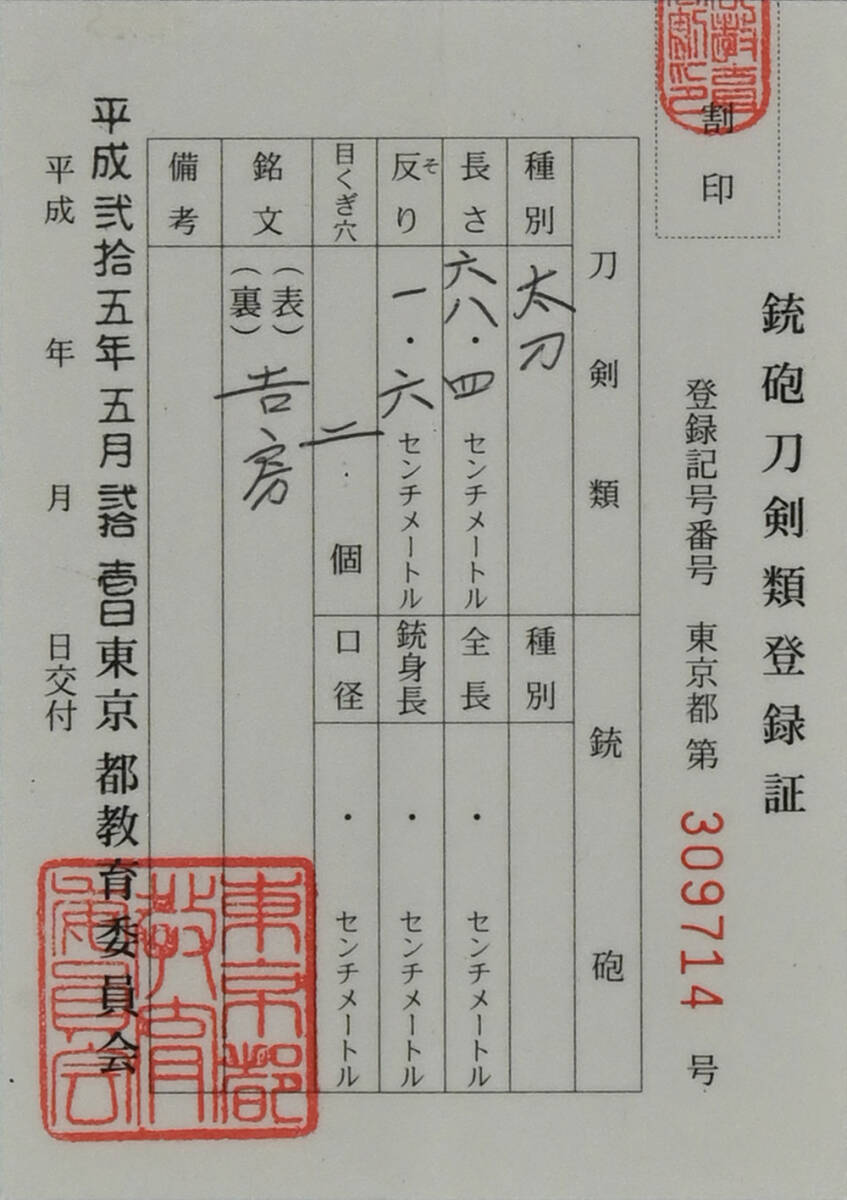 割印
銃砲刀剣類登録証
登録記号番号 東京都 第 309714 号
刀剣類
銃砲
種別 太刀
種別
長さ 六八・四 センチメートル
全長 ・ センチメートル
反り そ 一・六 センチメートル
銃身長 ・ センチメートル
目くぎ穴 二 個
口径 ・ センチメートル
銘文 (表) 吉房
(裏)
備考
平成弐拾五年五月弐拾壱日東京都教育委員会
平成 年 月 日交付
東京都
教育
委員会